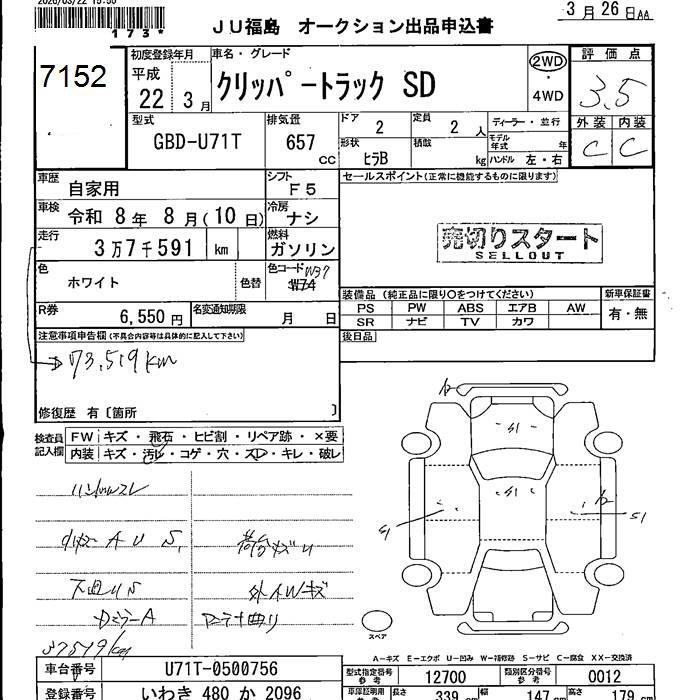 2026/03/22 15:50
*173*
JU福島 オークション出品申込書
3月26日AA
7152
初度登録年月
平成
22 3月
車名・グレード
クリッパートラック SD
2WD
・
4WD
評価点
3.5
外装 内装
C C
型式
GBD-U71T
排気量
657 cc
ドア
2
定員
2人
ディーラー・並行
モデル年式 年
形状
ヒラB
積数 kg
ハンドル 左・右
車歴
自家用
シフト
F5
セールスポイント(正常に機能するものに限ります)
車検
令和8年8月(10日)
冷房
ナシ
走行
3万7千591 km
燃料
ガソリン
売切りスタート
SELLOUT
色
ホワイト
色替
色コード W37
R券
6,550円
名変通知期限
月 日
装備品(純正品に限り○をつけてください)
新車保証書
有・無
PS PW ABS エアB AW
SR ナビ TV カワ
後日品
注意事項申告欄(不具合内容等は具体的に記入して下さい)
73,519km
修復歴 有〔箇所 〕
検査員記入欄
FW キズ・飛石・ヒビ割・リペア跡・×要
内装 キズ・汚レ・コゲ・穴・スレ・キレ・破レ
ハンドルスレ
A U S
荷台キズU
下廻りS
外イWキズ
ミラーA
37519km
スペア
A-キズ E-エクボ U-凹み W-補修跡 S-サビ C-腐食 XX-交換済
車台番号
U71T-0500756
登録番号
いわき 480 か 2096
型式指定番号 参考
12700
類別区分番号 参考
0012
車庫証明用 参考
長さ 339 cm
幅 147 cm
高さ 179 cm